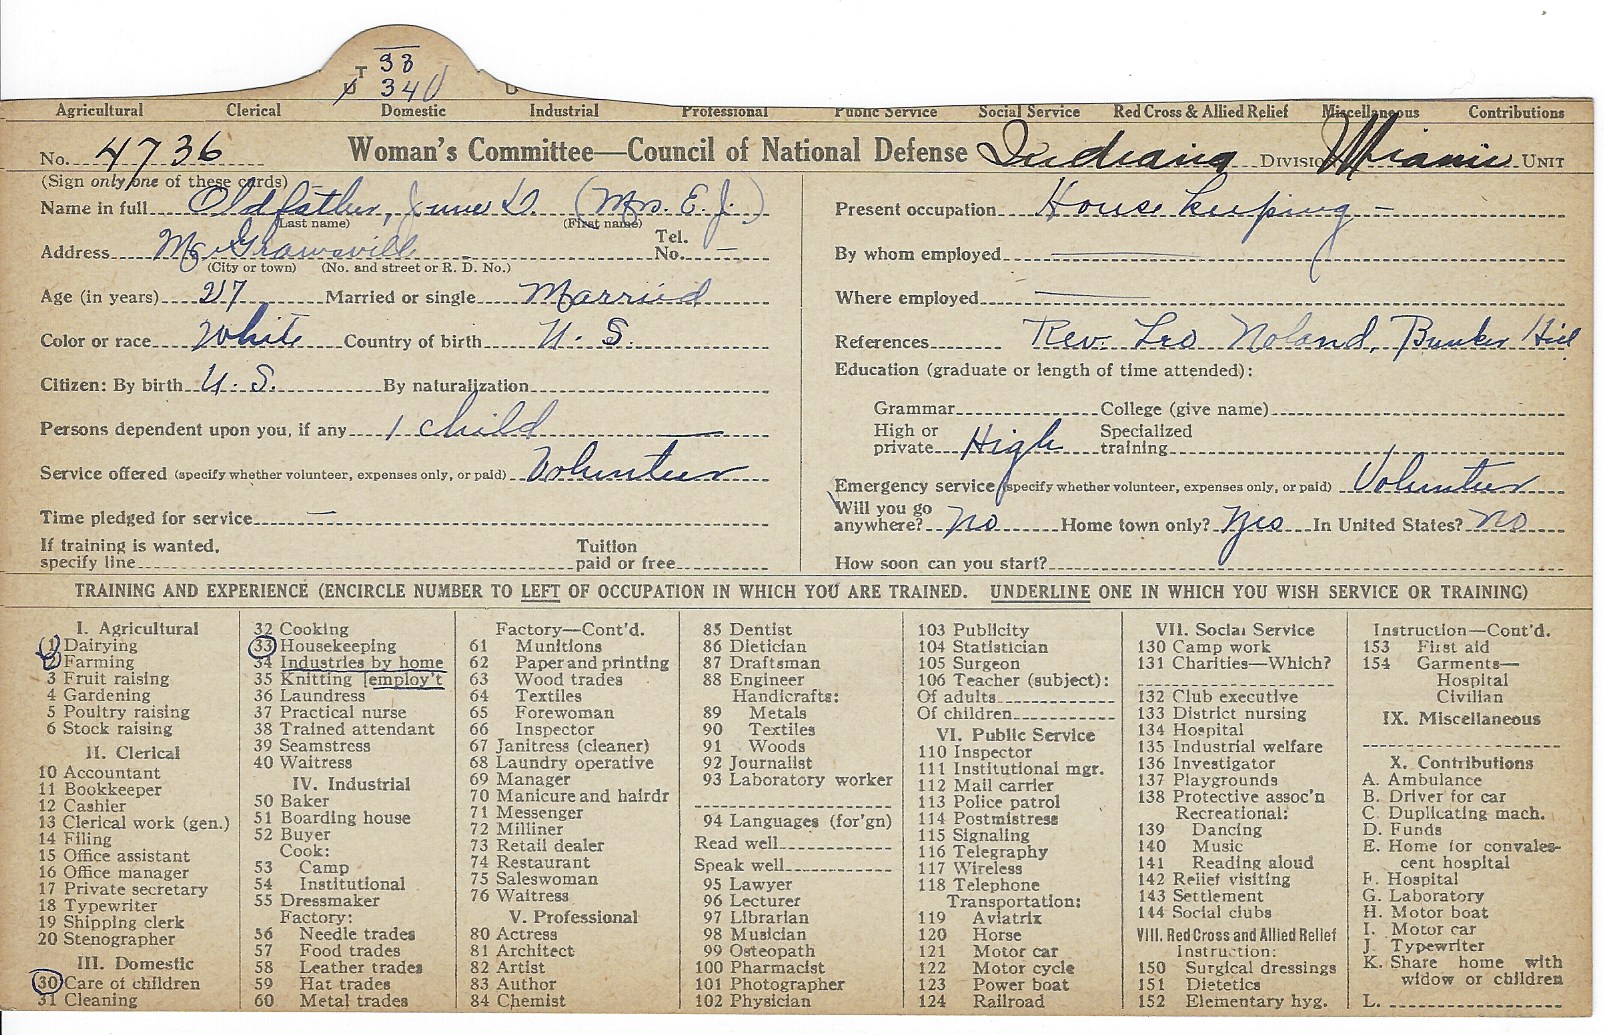 T 38
U 34
Agricultural Clerical Domestic Industrial Professional Public Service Social Service Red Cross & Allied Relief Miscellaneous Contributions
No. 4736 Woman's Committee—Council of National Defense Indiana Division Miami Unit
(Sign only one of these cards)
Name in full Oldfather, June D. (Mrs. E. J.)
(Last name) (First name)
Address McGrawsvill Tel. No. —
(City or town) (No. and street or R. D. No.)
Age (in years) 27 Married or single Married
Color or race White Country of birth U. S.
Citizen: By birth U. S. By naturalization
Persons dependent upon you, if any 1 child
Service offered (specify whether volunteer, expenses only, or paid) Volunteer
Time pledged for service —
If training is wanted, specify line Tuition paid or free
Present occupation House keeping —
By whom employed —
Where employed —
References Rev. Leo Noland, Bunker Hill
Education (graduate or length of time attended):
Grammar College (give name)
High or private High Specialized training
Emergency service (specify whether volunteer, expenses only, or paid) Volunteer
Will you go anywhere? No Home town only? Yes In United States? No
How soon can you start?
TRAINING AND EXPERIENCE (ENCIRCLE NUMBER TO LEFT OF OCCUPATION IN WHICH YOU ARE TRAINED. UNDERLINE ONE IN WHICH YOU WISH SERVICE OR TRAINING)
I. Agricultural
1 Dairying
2 Farming
3 Fruit raising
4 Gardening
5 Poultry raising
6 Stock raising
II. Clerical
10 Accountant
11 Bookkeeper
12 Cashier
13 Clerical work (gen.)
14 Filing
15 Office assistant
16 Office manager
17 Private secretary
18 Typewriter
19 Shipping clerk
20 Stenographer
III. Domestic
30 Care of children
31 Cleaning
32 Cooking
33 Housekeeping
34 Industries by home
35 Knitting [employ't
36 Laundress
37 Practical nurse
38 Trained attendant
39 Seamstress
40 Waitress
IV. Industrial
50 Baker
51 Boarding house
52 Buyer
Cook:
53 Camp
54 Institutional
55 Dressmaker
Factory:
56 Needle trades
57 Food trades
58 Leather trades
59 Hat trades
60 Metal trades
Factory—Cont'd.
61 Munitions
62 Paper and printing
63 Wood trades
64 Textiles
65 Forewoman
66 Inspector
67 Janitress (cleaner)
68 Laundry operative
69 Manager
70 Manicure and hairdr
71 Messenger
72 Milliner
73 Retail dealer
74 Restaurant
75 Saleswoman
76 Waitress
V. Professional
80 Actress
81 Architect
82 Artist
83 Author
84 Chemist
85 Dentist
86 Dietician
87 Draftsman
88 Engineer
Handicrafts:
89 Metals
90 Textiles
91 Woods
92 Journalist
93 Laboratory worker
94 Languages (for'gn)
Read well
Speak well
95 Lawyer
96 Lecturer
97 Librarian
98 Musician
99 Osteopath
100 Pharmacist
101 Photographer
102 Physician
103 Publicity
104 Statistician
105 Surgeon
106 Teacher (subject):
Of adults
Of children
VI. Public Service
110 Inspector
111 Institutional mgr.
112 Mail carrier
113 Police patrol
114 Postmistress
115 Signaling
116 Telegraphy
117 Wireless
118 Telephone
Transportation:
119 Aviatrix
120 Horse
121 Motor car
122 Motor cycle
123 Power boat
124 Railroad
VII. Social Service
130 Camp work
131 Charities—Which?
132 Club executive
133 District nursing
134 Hospital
135 Industrial welfare
136 Investigator
137 Playgrounds
138 Protective assoc'n
Recreational:
139 Dancing
140 Music
141 Reading aloud
142 Relief visiting
143 Settlement
144 Social clubs
VIII. Red Cross and Allied Relief
Instruction:
150 Surgical dressings
151 Dietetics
152 Elementary hyg.
Instruction—Cont'd.
153 First aid
154 Garments—
Hospital
Civilian
IX. Miscellaneous
X. Contributions
A. Ambulance
B. Driver for car
C. Duplicating mach.
D. Funds
E. Home for convales-
cent hospital
F. Hospital
G. Laboratory
H. Motor boat
I. Motor car
J. Typewriter
K. Share home with
widow or children
L.